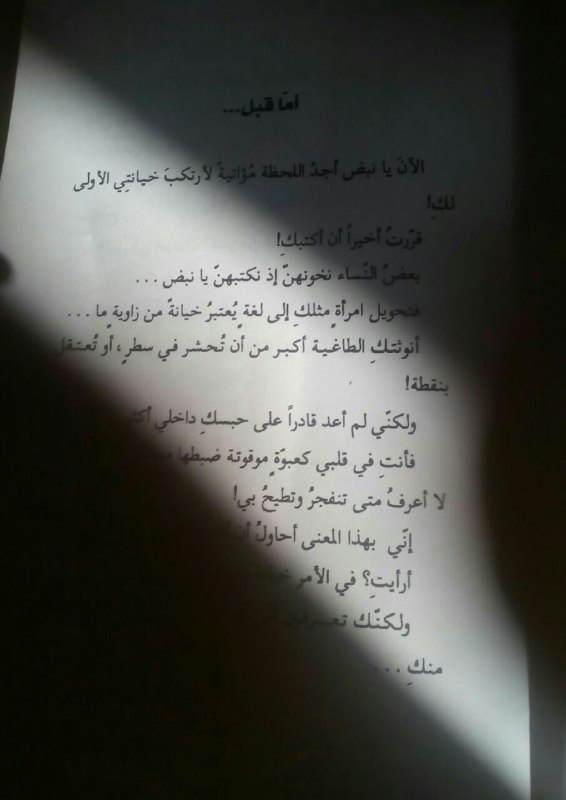 أمّا قبل...
الآنَ يا نبض أجدُ اللحظة مُؤاتيةً لأرتكبَ خيانتِي الأولى
لكِ!
قرّرتُ أخيراً أن أكتبكِ!
بعضُ النّساء نخونهنّ إذ نكتبهنّ يا نبض ...
فتحويل امرأةٍ مثلكِ إلى لغةٍ يُعتبرُ خيانةً من زاوية ٍما ...
أنوثتكِ الطاغية أكبر من أن تُحشر في سطرٍ، أو تُعتقل
بنقطة!
ولكنّي لم أعد قادراً على حبسكِ داخلي
فأنتِ في قلبي كعبوّةٍ موقوتة ضبطها
لا أعرفُ متى تنفجرُ وتطيحُ بي!
إنّي بهذا المعنى أحاولُ
أرأيتِ؟ في الأمر
ولكنّك
منكِ ...